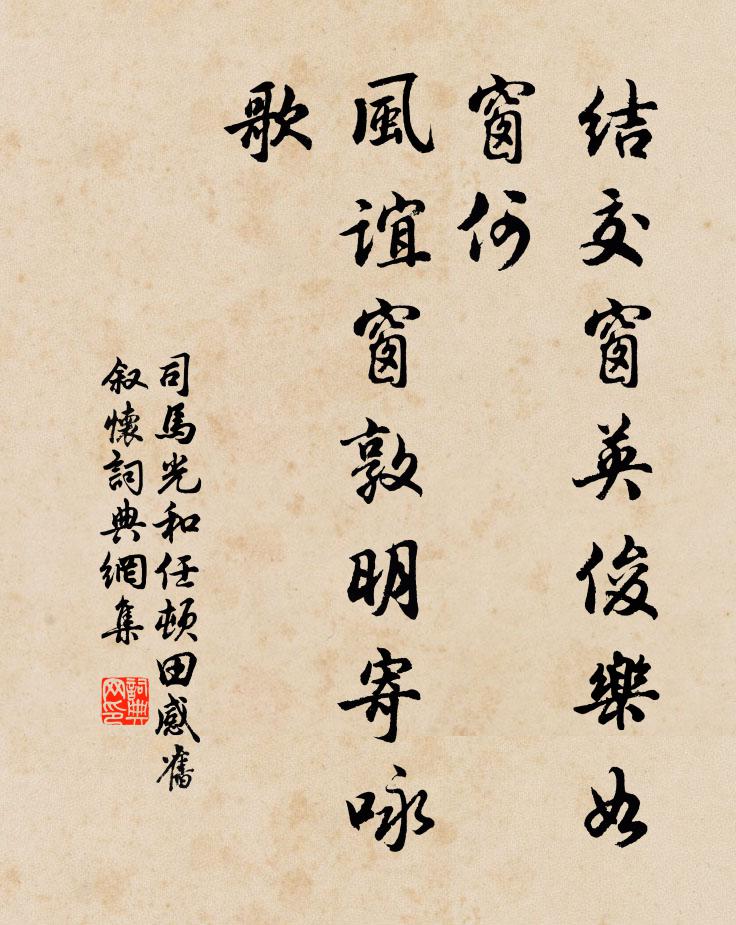 结交窗英俊樂如
窗何
風誼窗敦明寄咏
歌
司馬光和任頓田感舊
叙懷詞典網集
詞典
网印